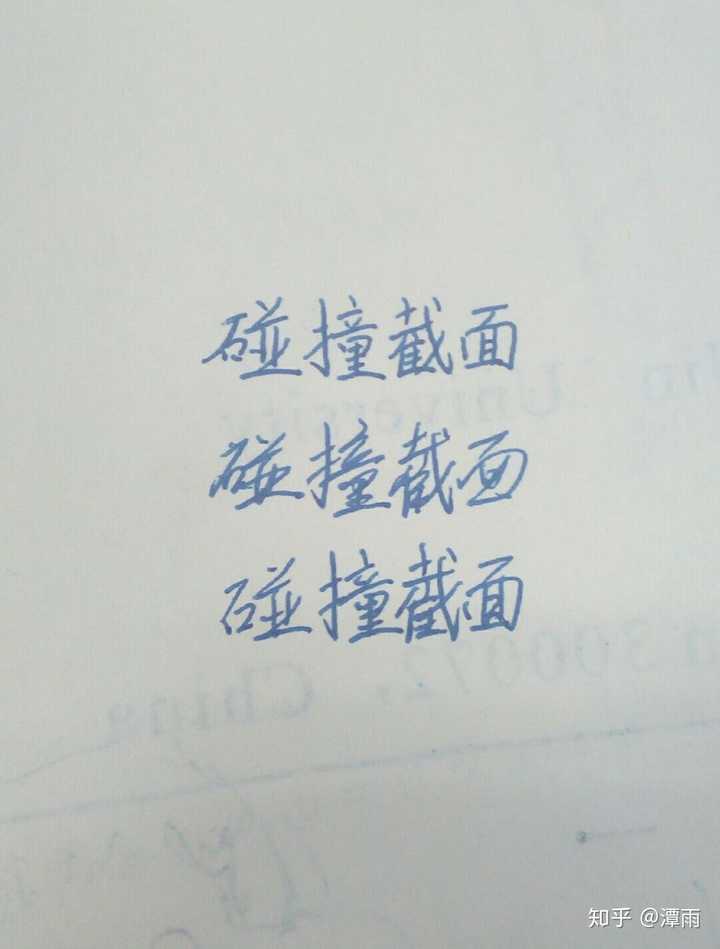 碰撞截面
University
碰撞截面
碰撞截面
300072, China
知乎 @潭雨